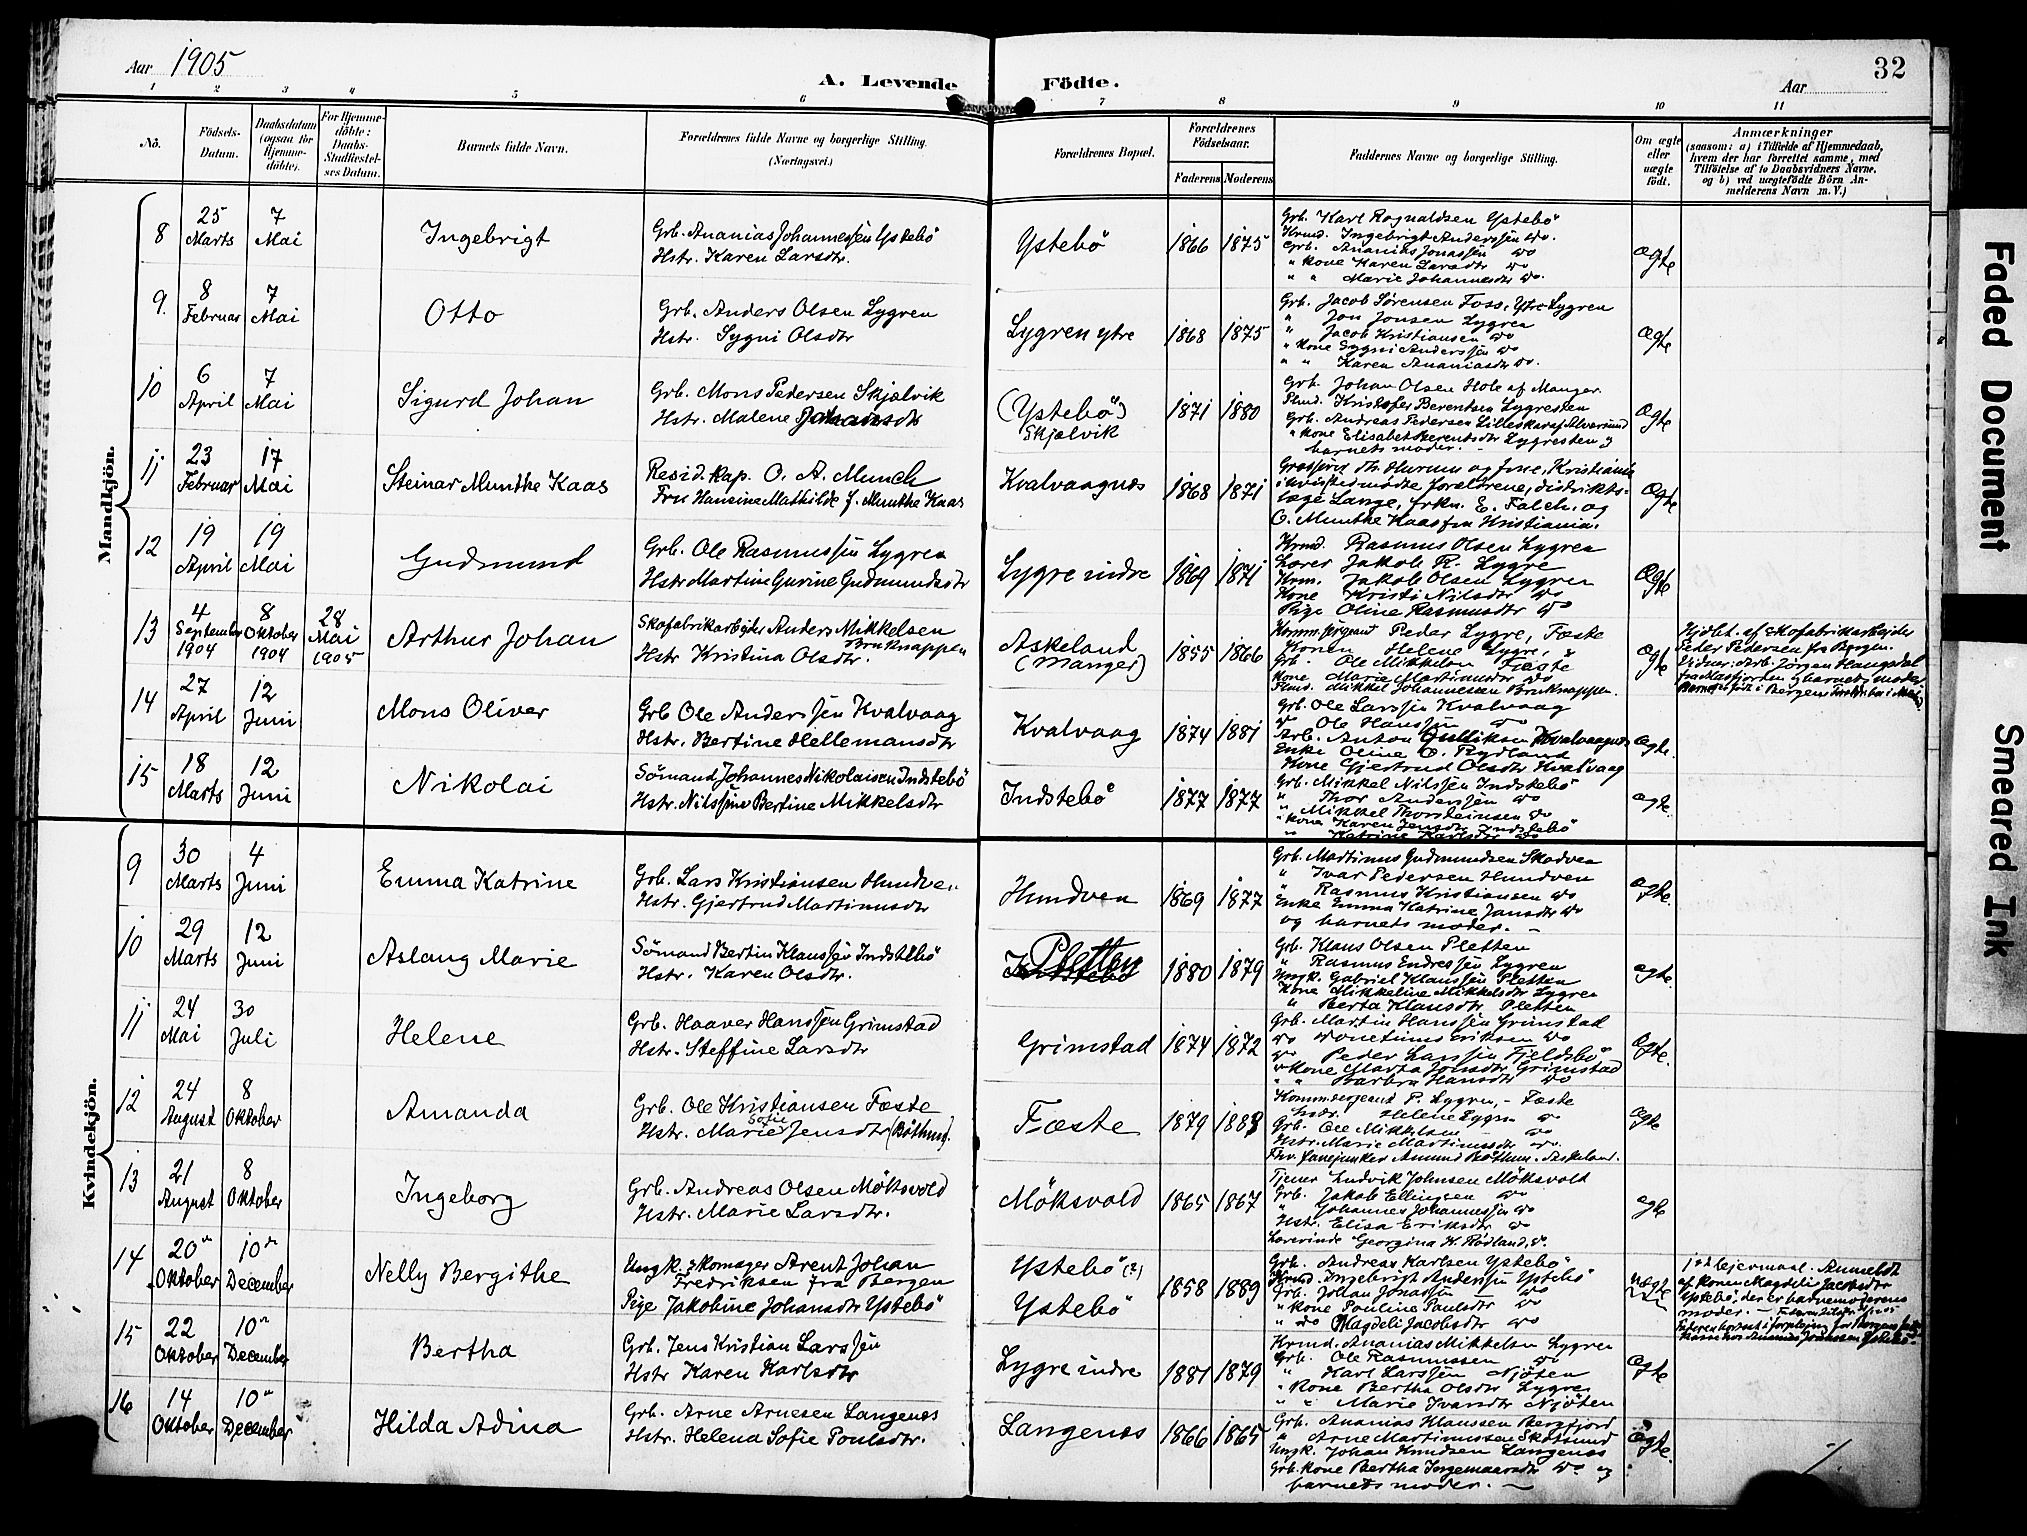 Aar 1905
A. Levende Födte.
Aar
32
1 2 3 4 5 6 7 8 9 10 11
No.
Födsels-Datum.
Daabsdatum (ogsaa for Hjemme-döbte).
For Hjemme-döbte: Daabs-Stadfæstel-ses Datum.
Barnets fulde Navn.
Forældrenes fulde Navne og borgerlige Stilling. (Næringsvei.)
Forældrenes Bopæl.
Forældrenes Födselsaar.
Faderens Moderens
Faddernes Navne og borgerlige Stilling.
Om ægte eller uægte födt.
Anmærkninger
(saasom: a) i Tilfælde af Hjemmedaab,
hvem der har forrettet samme, med
Tilföielse af to Daabsvidners Navne.
og b) ved uægtefödte Börn An-
melderens Navn m. V.)
Mandkjön.
8 25 Marts 7 Mai Ingebrigt
Grb. Ananias Johannessen Ystebö
Hstr. Karen Larsdtr.
Ystebö 1866 1875
Grb. Karl Rognaldsen Ystebö
Krmd. Ingebrigt Anderssen do.
Grb. Ananias Jonassen do
" kone Karen Larsdtr do
" " Marie Johannesdtr do.
ægte
9. 8 Februar 7 Mai Otto
Grb. Anders Olsen Lygren
Hstr. Sygni Olsdtr
Lygren ytre 1868 1875
Grb. Jacob Sörensen Foss, Ytre Lygren
" Jon Jonsen Lygren
" Jacob Kristiansen do
" kone Sygni Anderssen do
" " Karen Ananiasdtr do.
Ægte
10 6 April 7 Mai Sigurd Johan
Grb. Mons Pedersen Skjælvik
Hstr. Malene
(Ystebö) Skjælvik 1871 1880
Grb. Johan Olsen Hole af Manger.
Plmd. Kristofer Berentsen Lygresten
Grb. Andreas Pedersen Lilleskar af Alversund
" kone Elisabet Berentsdtr Lygresten og
barnets moder.
Ægte
11 23 Februar 17 Mai Steinar Munthe Kaas
Resid. kap. O. A. Munch
Fru Hansine Mathilde f. Munthe Kaas
Kvalvaagnes 1868 1871
Grosserer Th. Hurum og frue, Kristiania
forældrene, distrikts-
læge Lange, frkn. E. Falch. og
O. Munthe Kaas fra Kristiania.
Ægte
12 19 April 19 Mai Gudmund
Grb. Ole Rasmussen Lygren
Hstr Martine Gurine Gudmundsdtr
Lygre indre 1869 1871
Krmd. Rasmus Olsen Lygren
Lærer Jakob R. Lygre
Krm. Jakob Olsen Lygren
Kone Kristi Nilsdtr do
Pige Oline Rasmusdtr do
Ægte
13 4 September 1904 8 Oktober 1904 28 Mai 1905 Arthur Johan
Skofabrikarbejder Anders Mikkelsen Bruknappen
Hstr Kristina Olsdtr.
Askeland (Manger) 1855 1866
Komm. sergeant Peder Lygre, Fæste
Konen Helene Lygre, "
Grb. Ole Mikkelsen Fæste
Kone Marie Martinusdtr do
Plmd. Mikkel Johannessen Bruknappen.
Ægte
Hjdbt. af Skofabrikarbejder
Peder Pedersen fra Bergen.
Vidner: Arb. Jørgen Haugsdal
fra Masfjorden og barnets moder
14 27 April 12 Juni Mons Oliver
Grb Ole Anderssen Kvalvaag
Hstr. Bertine Hellemansdtr
Kvalvaag 1874 1881
Grb. Ole Larssen Kvalvaag
do Ole Hanssen do
Arb. Anton Gulliksen Kvalvaagnes
Enke Oline O. Rydland
Kone Gjertrud Olsdtr Kvalvaag
Ægte.
15 18 Marts 12 Juni Nikolai
Sömand Johannes Nikolaisen Indstebö
Hstr. Nilssine Bertine Mikkelsdtr
Indstebö 1877 1877
Grb. Mikkel Nilssen Indstebö
" Thor Anderssen do
" Mikkel Thorsteinsen do
" kone Karen Jensdtr Indstebö
" Katrine Karlsdtr do
ægte.
Kvindekjön.
9 30 Marts 4 Juni Emma Katrine
Grb. Lars Kristiansen Hundven
Hstr. Gjertrud Martinusdtr
Hundven 1869 1877
Grb. Martinus Gudmundsen Skodven
" Ivar Pedersen Hundven
" Rasmus Kristiansen do
Enke Emma Katrine Jansdtr do
og barnets moder.
ægte.
10 29 Marts 12 Juni Aslaug Marie
Sömand Bertin Klaussen Indstebö
Hstr. Karen Olsdtr.
Pletten 1880 1879
Grb. Klaus Olsen Pletten
" Rasmus Endressen Lygren
Ungk. Gabriel Klaussen Pletten
Kone Mikkeline Mikkelsdtr Lygren
" Berta Klausdtr Pletten
ægte.
11 24 Mai 30 Juli Helene
Grb. Haaver Hanssen Grimstad
Hstr. Steffine Larsdtr
Grimstad 1874 1872
Grb. Martin Hanssen Grimstad
do Eriksen do
do Peder Larssen Fjeldsbö
" Kone Marta Jonsdtr Grimstad
" " Barbra Hansdtr do
Ægte.
12 24 August 8 Oktober Amanda
Grb. Ole Kristiansen Fæste
Hstr. Marie Sofie Jensdtr (Böthun).
Fæste 1879 1883
Kommsergeant P. Lygren, - Fæste
Hstr. Helene Lygre do
Grb. Ole Mikkelsen do
Hstr. Marie Martinusdtr do.
Fhv. fanejunker Amund Böthun. Askeland.
ægte
13 21 August 8 Oktober Ingeborg
Grb. Andreas Olsen Möksvold
Hstr. Marie Larsdtr.
Möksvold 1865 1867
Tjener Ludvik Johnsen Möksvold
Grb. Jakob Ellingsen do
" Johannes Johannessen do
Hstr. Elisa Eriksdtr do
Lærerinde Georgina H. Rödland, do.
ægte
14 20de Oktober 10de December Nelly Bergithe
Ungk. skomager Arent Johan
Fredriksen fra Bergen
Pige Jakobine Johansdtr Ystebö
Ystebö (?)
Ystebö 1858 1889
Grb. Andreas Karlsen Ystebö
Krmd. Ingebrigt Anderssen Ystebö
Grb. Johan Jonassen do
" kone Pouline Paulsdtr do
" do Magdeli Jacobsdtr do
uægte
1 + 2 lejermaal. Anmeldt
af konen Magdeli Jacobsdtr
Ystebö, der er barnemoderens
moder.
15 22 Oktober 10de December Bertha
Grb. Jens Kristian Larssen
Hstr Karen Karlsdtr
Lygre indre 1881 1879
Krmd. Ananias Mikkelsen Lygren
Grb. Ole Rasmussen do
" Karl Larssen Njöten
" Kone Bertha Olsdtr Lygren
" " Marie Ivarsdtr Njöten
Ægte
16 14 Oktober 10de December Hilda Adina
Grb. Arne Arnesen Langenæs
Hstr. Helena Sofie Poulsdtr.
Langenæs 1866 1865
Grb. Ananias Klaussen Bergfjord
" Arne Martinussen Skotsund
Ungk. Johan Knudsen Langenæs
Grb. kone Bertha Ingemaarsdtr do og
barnets moder.
Ægte.
Faded Document
Smeared Ink